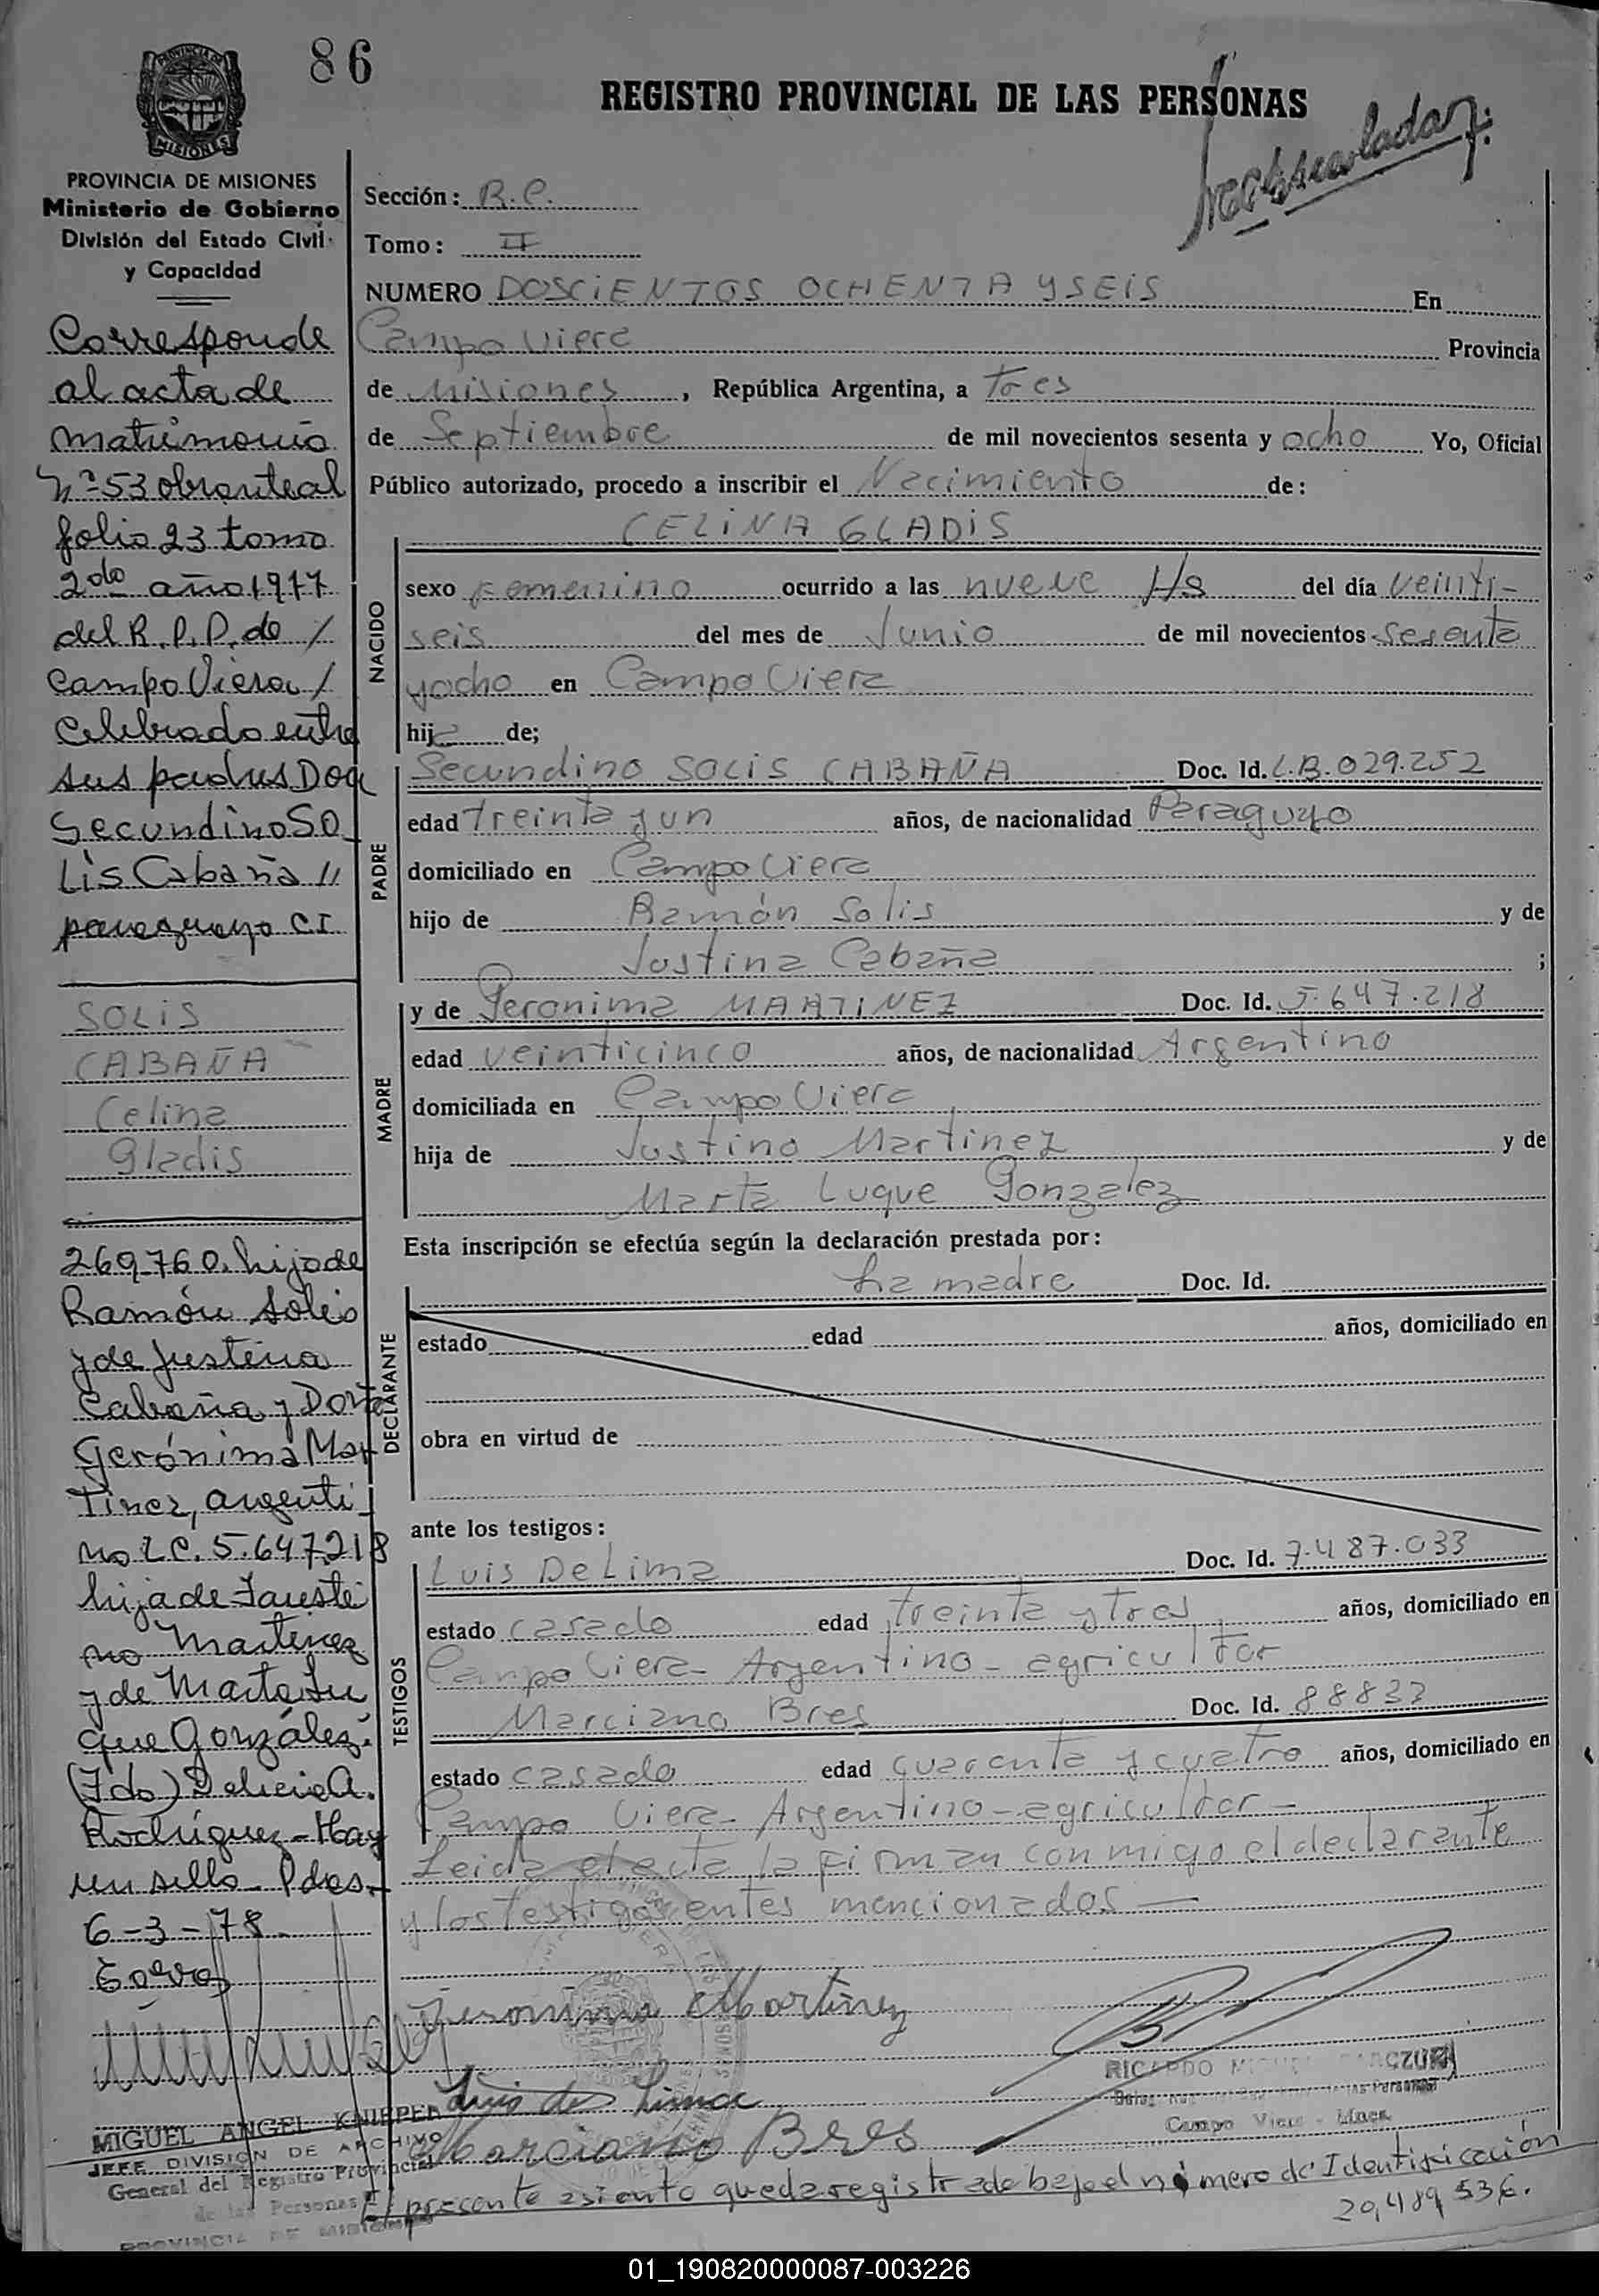 86
REGISTRO PROVINCIAL DE LAS PERSONAS
PROVINCIA DE MISIONES
Ministerio de Gobierno
División del Estado Civil
y Capacidad
Corresponde
al acta de
matrimonio
Nº 53 obrante al
folio 23 tomo
2do año 1977
del R.P.P. de /
Campo Viera /
celebrado entre
sus padres Don
Secundino SO
Lis Cabaña //
paraguayo CI
SOLIS
CABAÑA
Celina
Gladis
269.760. hijo de
Ramón Solis
y de Justina
Cabaña y Doña
Gerónima Mar
tinez, argenti
na L.C. 5.647.218
hija de Fausti
no Martinez
y de Marta Lu
que González.
(Fdo) Delicia A.
Rodríguez - Hay
un sello - Pdas.
6-3-78
MIGUEL ANGEL KNIPPER
JEFE DIVISION DE ARCHIVO
General del Registro Provincial
de las Personas
PROVINCIA DE MISIONES
Sección: R.C.
Tomo: II
NUMERO DOSCIENTOS OCHENTA Y SEIS En
Campo Viera Provincia
de Misiones, República Argentina, a Tres
de Septiembre de mil novecientos sesenta y ocho Yo, Oficial
Público autorizado, procedo a inscribir el Nacimiento de:
CELINA GLADIS
NACIDO
sexo Femenino ocurrido a las nueve Hs del día veinti-
seis del mes de Junio de mil novecientos sesenta
y ocho en Campo Viera
hija de;
PADRE
Secundino SOLIS CABAÑA Doc. Id. C.B. 029.252
edad Treinta y un años, de nacionalidad Paraguayo
domiciliado en Campo Viera
hijo de Ramón Solis y de
Justina Cabaña ;
MADRE
y de Geronima MARTINEZ Doc. Id. 5.647.218
edad veinticinco años, de nacionalidad Argentino
domiciliada en Campo Viera
hija de Justino Martinez y de
Marta Luque Gonzalez
Esta inscripción se efectúa según la declaración prestada por:
La madre Doc. Id.
DECLARANTE
estado edad años, domiciliado en
obra en virtud de
ante los testigos:
TESTIGOS
Luis De Lima Doc. Id. 7.487.033
estado casado edad treinta y tres años, domiciliado en
Campo Viera - Argentino - agricultor
Marciano Bres Doc. Id. 88833
estado casado edad cuarenta y cuatro años, domiciliado en
Campo Viera - Argentino - agricultor -
Leida el acta la firman conmigo el declarante
y los testigos entes mencionados —
Geronima Martinez
Luis de Lima
Marciano Bres
RICARDO
Campo Viera - Mnes.
El presente asiento queda registrado bajo el número de Identificación
20,489,536.
01_190820000087-003226